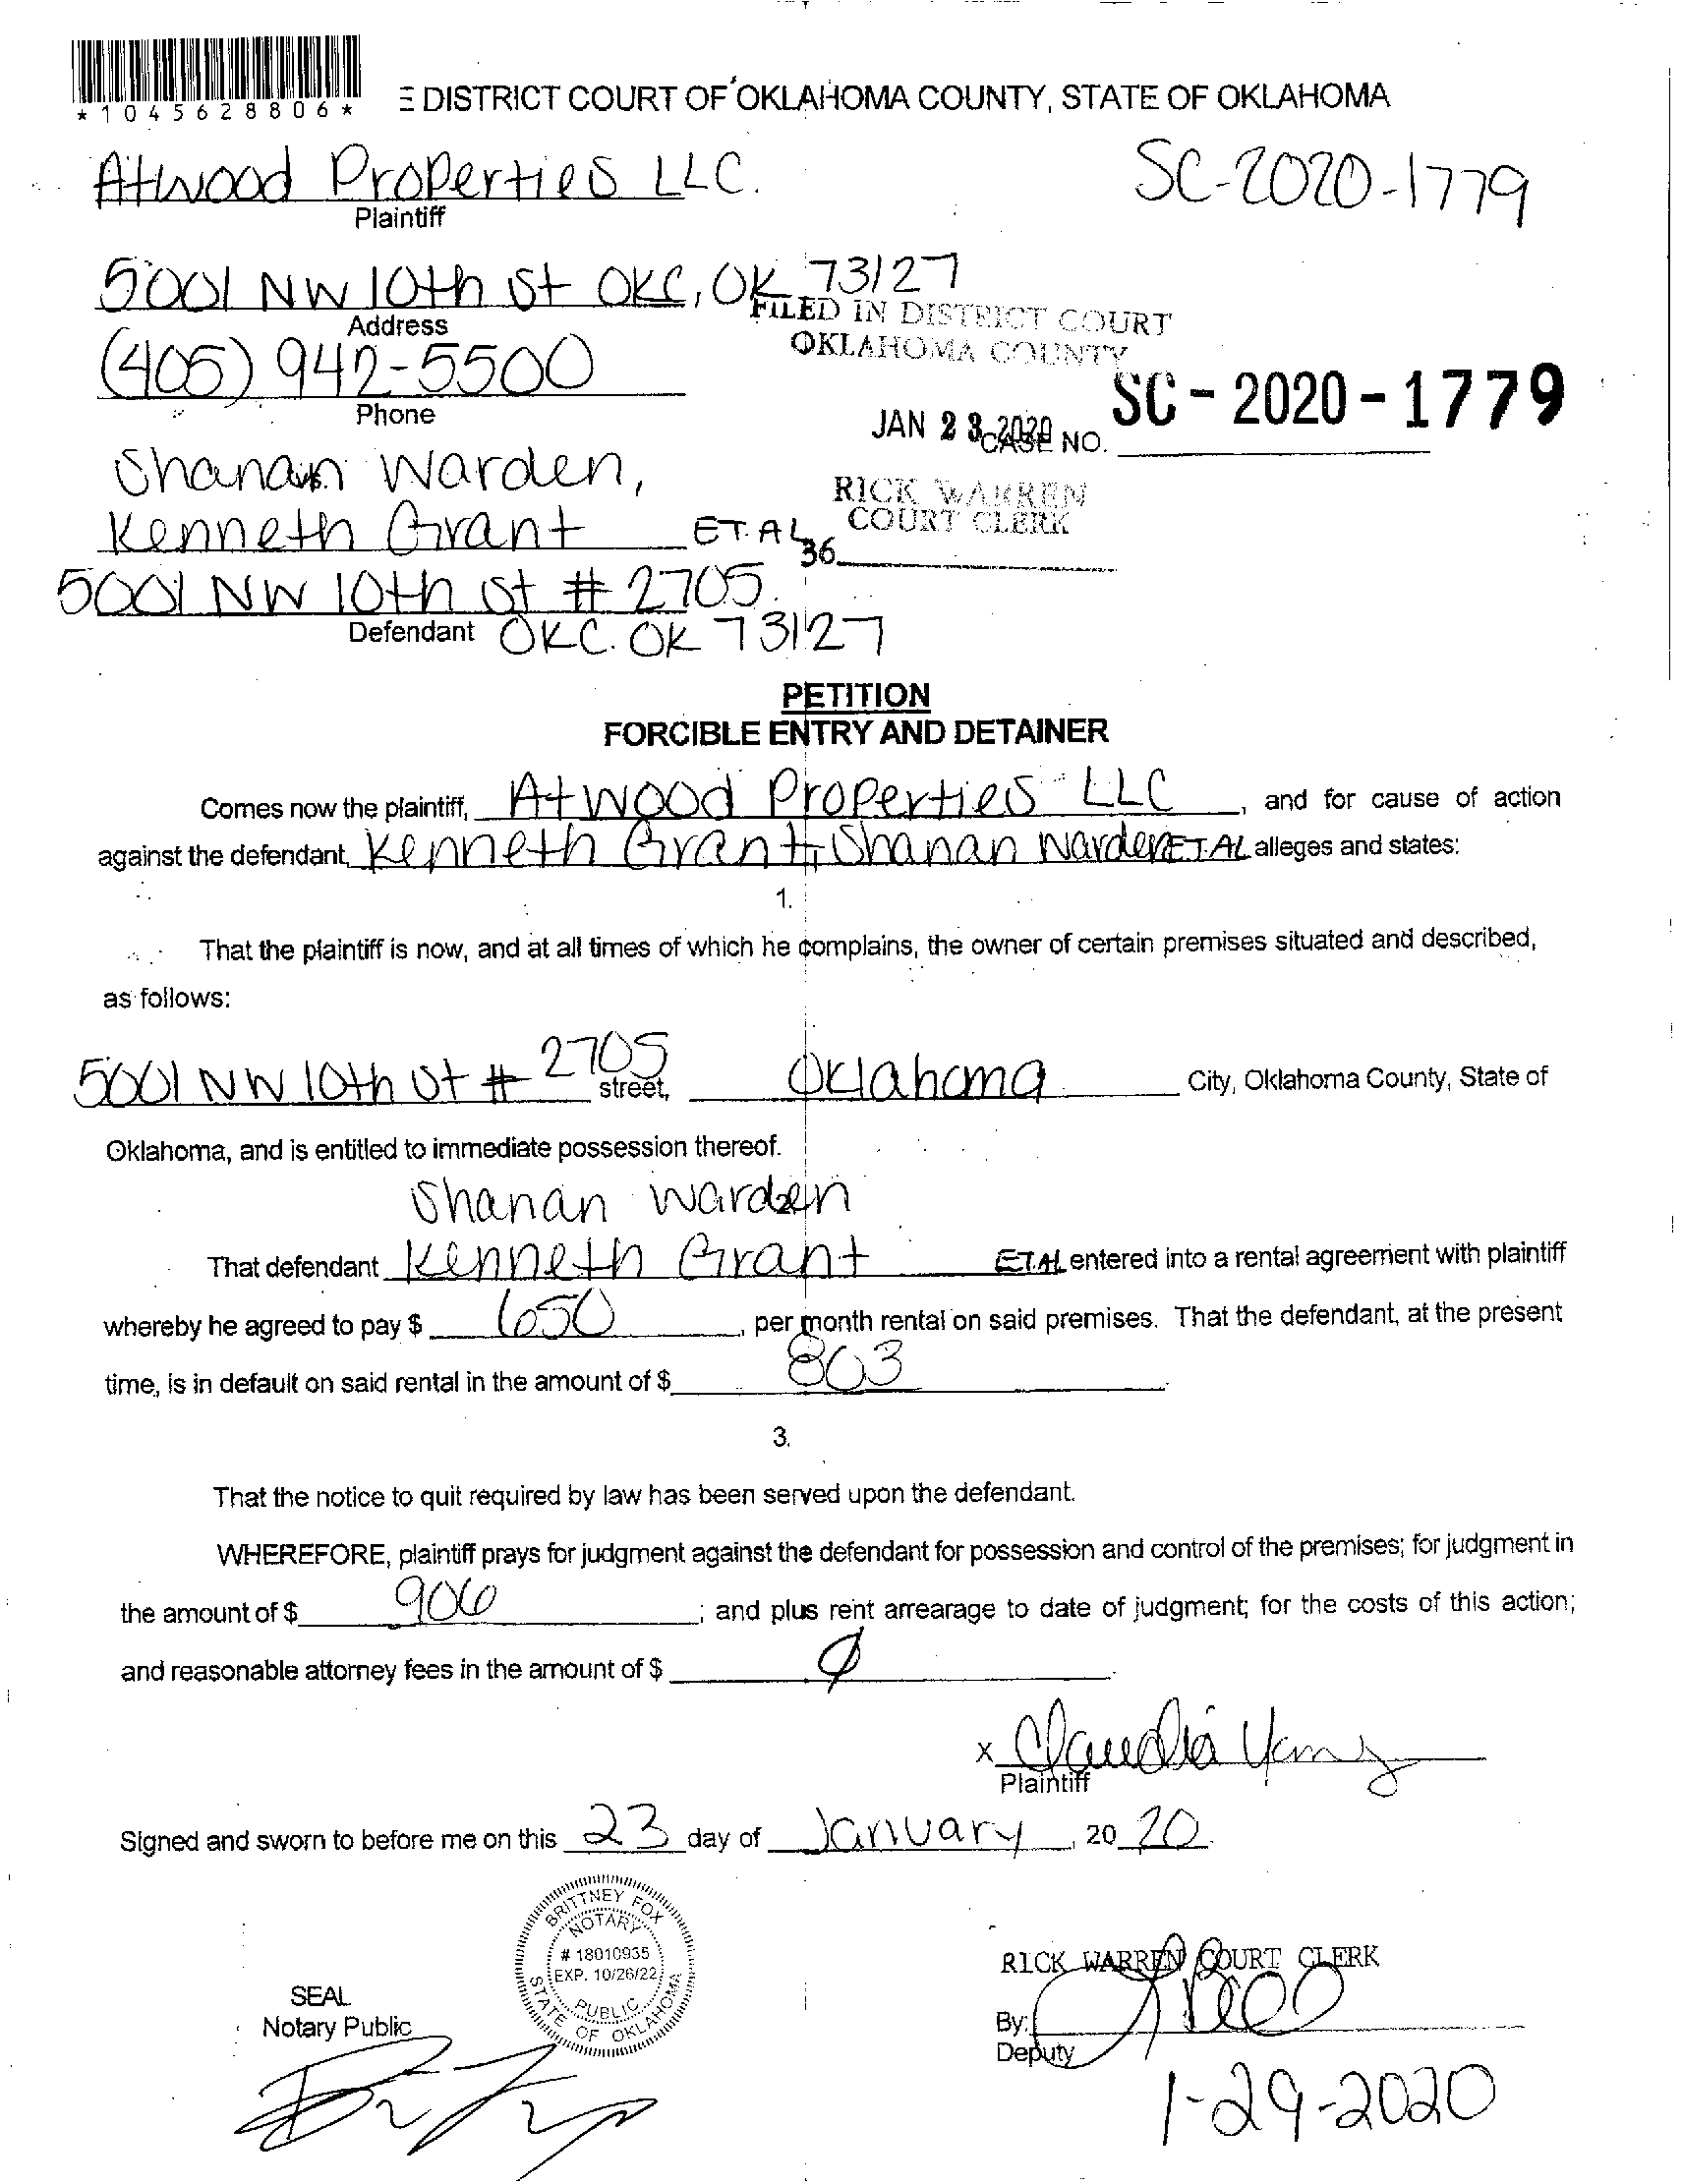 *1045628806*
E DISTRICT COURT OF OKLAHOMA COUNTY, STATE OF OKLAHOMA
Atwood Properties LLC.
SC-2020-1779
Plaintiff
5001 NW 10th St OKC, OK 73127
Address
FILED IN DISTRICT COURT
OKLAHOMA COUNTY
(405) 942-5500
Phone
JAN 23 2020
CASE NO. SC-2020-1779
Shanan Warden,
RICK WARREN
COURT CLERK
Kenneth Grant ET. AL
36
5001 NW 10th St # 2705
Defendant OKC. OK 73127
PETITION
FORCIBLE ENTRY AND DETAINER
Comes now the plaintiff, Atwood Properties LLC, and for cause of action
against the defendant, Kenneth Grant, Shanan Warden ET AL alleges and states:
1.
That the plaintiff is now, and at all times of which he complains, the owner of certain premises situated and described,
as follows:
5001 NW 10th St # 2705 street, Oklahoma City, Oklahoma County, State of
Oklahoma, and is entitled to immediate possession thereof.
Shanan Warden
That defendant Kenneth Grant ET AL entered into a rental agreement with plaintiff
whereby he agreed to pay $ 650, per month rental on said premises. That the defendant, at the present
time, is in default on said rental in the amount of $ 803.
3.
That the notice to quit required by law has been served upon the defendant.
WHEREFORE, plaintiff prays for judgment against the defendant for possession and control of the premises; for judgment in
the amount of $ 906; and plus rent arrearage to date of judgment; for the costs of this action;
and reasonable attorney fees in the amount of $ 0.
x Claudia
Plaintiff
Signed and sworn to before me on this 23 day of January, 20 20.
BRITTNEY FOX
NOTARY
# 18010935
EXP. 10/26/22
PUBLIC
STATE OF OKLAHOMA
SEAL
Notary Public
RICK WARREN COURT CLERK
By:
Deputy
1-29-2020